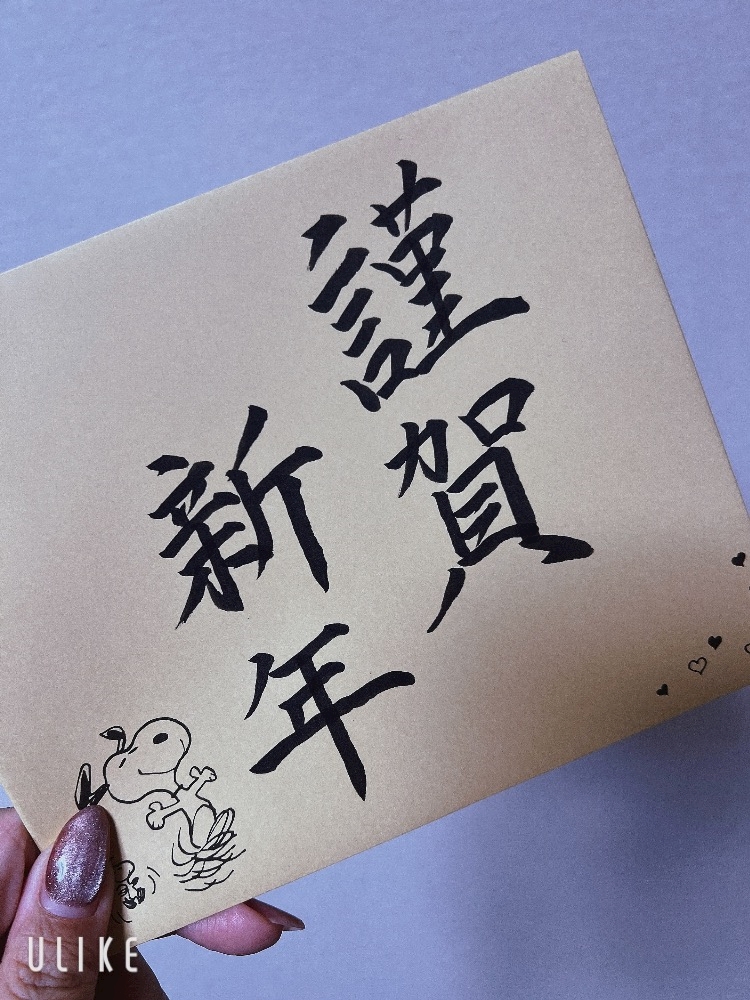 謹賀
新年
ULIKE